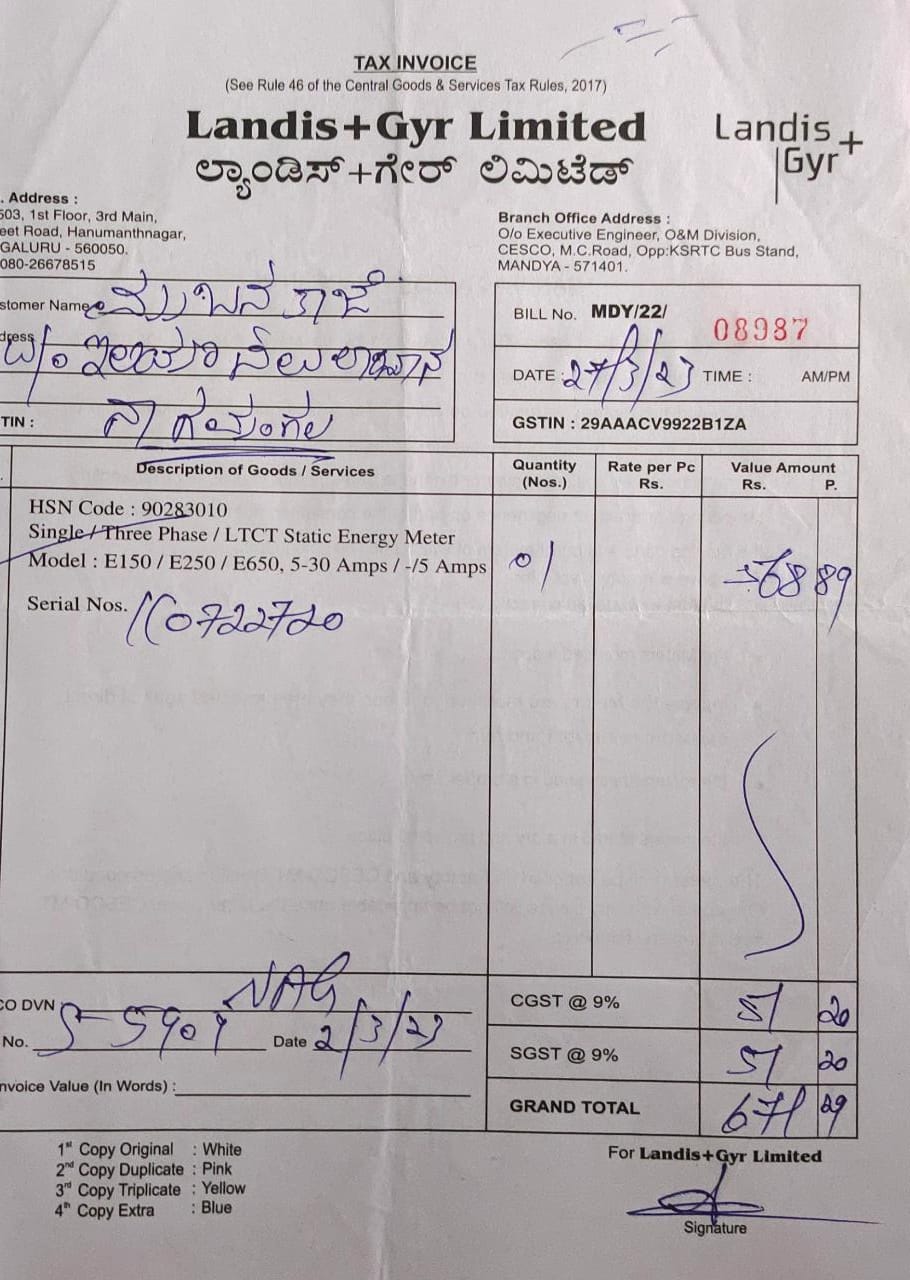 TAX INVOICE
(See Rule 46 of the Central Goods & Services Tax Rules, 2017)
Landis+Gyr Limited
ಲ್ಯಾಂಡಿಸ್+ಗೇರ್ ಲಿಮಿಟೆಡ್
Landis+
Gyr
. Address :
503, 1st Floor, 3rd Main,
eet Road, Hanumanthnagar,
GALURU - 560050.
080-26678515
Branch Office Address :
O/o Executive Engineer, O&M Division,
CESCO, M.C.Road, Opp:KSRTC Bus Stand,
MANDYA - 571401.
stomer Name
dress
TIN : ನಾಗಮಂಗಲ
BILL No. MDY/22/ 08987
DATE : 27/3/23 TIME : AM/PM
GSTIN : 29AAACV9922B1ZA
Description of Goods / Services Quantity (Nos.) Rate per Pc Rs. Value Amount Rs. P.
HSN Code : 90283010
Single / Three Phase / LTCT Static Energy Meter
Model : E150 / E250 / E650, 5-30 Amps / -/5 Amps 01 568 89
Serial Nos. 110722720
CO DVN NAG
No. 5-5909 Date 2/3/23
nvoice Value (In Words) :
CGST @ 9% 51 20
SGST @ 9% 51 20
GRAND TOTAL 671 29
1st Copy Original : White
2nd Copy Duplicate : Pink
3rd Copy Triplicate : Yellow
4th Copy Extra : Blue
For Landis+Gyr Limited
Signature